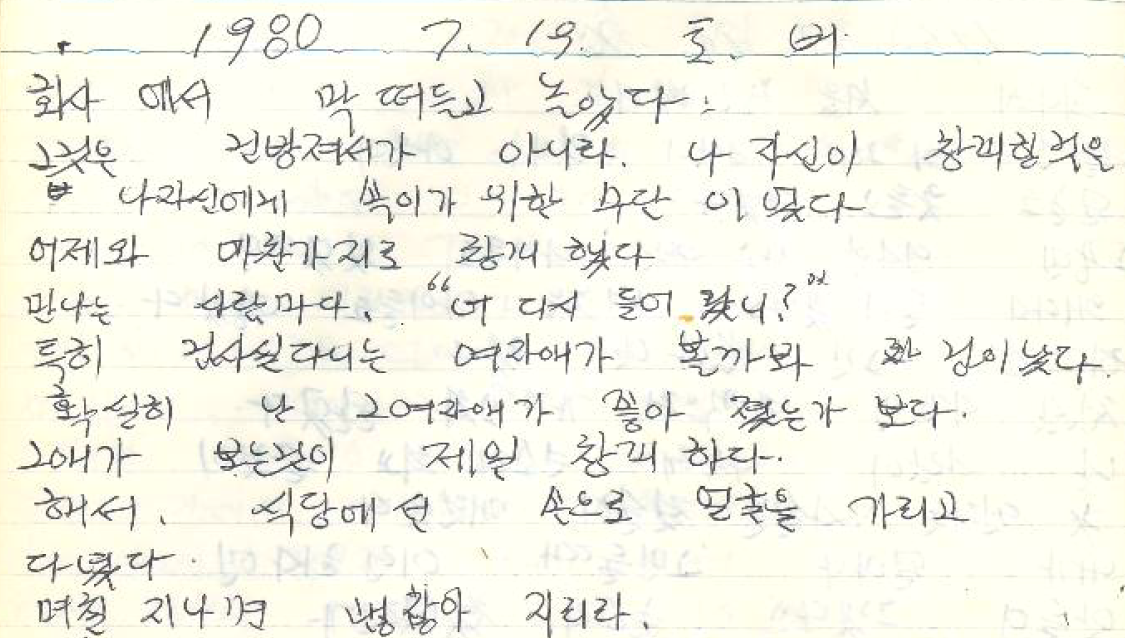 1980 7. 19. 토. 비
회사 에서 막 떠들고 놀았다.
그것은 건방져서가 아니라. 나 자신이 창피할것을
나자신에게 속이기 위한 수단 이 였다
어제와 마찬가지로 랑개 했다
만나는 사람마다. "너 다시 들어 왔니?"
특히 검사실다니는 여자애가 볼까봐 겁이낮다.
확실히 난 그여자애가 좋아 졌는가 보다.
그애가 보는것이 제일 창피 하다.
해서. 식당에선 손으로 얼굴을 가리고
다녔다.
며칠 지나면 괜찮아 지리라.